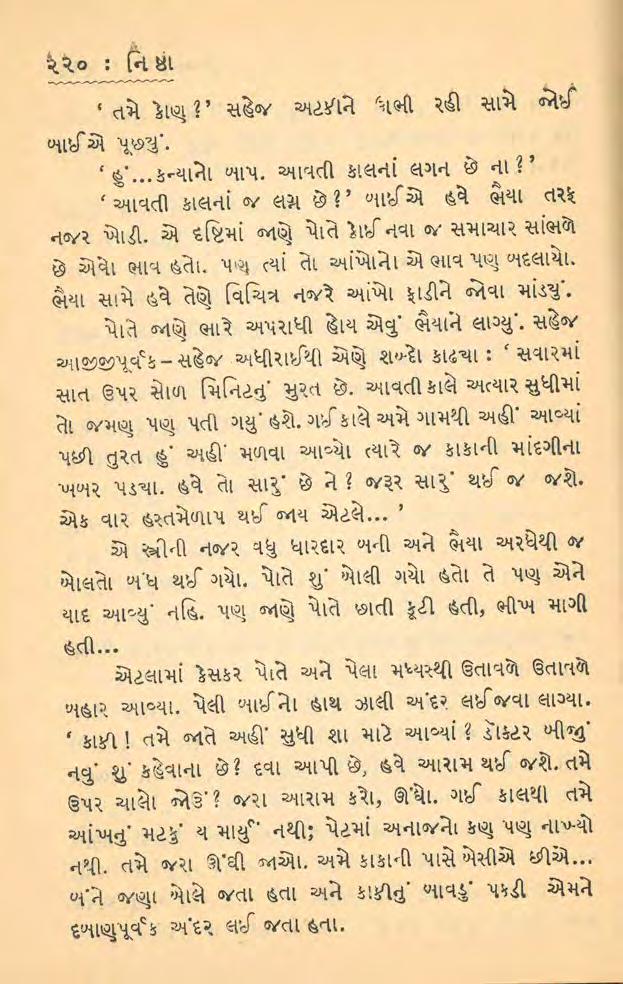 ૨૨૦ : નિષ્ઠા
‘ તમે કોણ ?’ સહેજ અટકીને ઊભી રહી સામે જોઈ
બાઈએ પૂછ્યું.
‘ હું...કન્યાનો બાપ. આવતી કાલનાં લગન છે ના ?’
‘ આવતી કાલનાં જ લગ્ન છે ?’ બાઈએ હવે ભૈયા તરફ
નજર ખોડી. એ દૃષ્ટિમાં જાણે પોતે કોઈ નવા જ સમાચાર સાંભળે
છે એવો ભાવ હતો. પણ ત્યાં તો આંખોનો એ ભાવ પણ બદલાયો.
ભૈયા સામે હવે તેણે વિચિત્ર નજરે આંખો ફાડીને જોવા માંડ્યું.
પોતે જાણે ભારે અપરાધી હોય એવું ભૈયાને લાગ્યું. સહેજ
આજીજીપૂર્વક – સહેજ અધીરાઈથી એણે શબ્દો કાઢ્યા : ‘ સવારમાં
સાત ઉપર સોળ મિનિટનું મુરત છે. આવતી કાલે અત્યાર સુધીમાં
તો જમણ પણ પતી ગયું હશે. ગઈ કાલે અમે ગામથી અહીં આવ્યાં
પછી તુરત હું અહીં મળવા આવ્યો ત્યારે જ કાકાની માંદગીના
ખબર પડ્યા. હવે તો સારું છે ને ? જરૂર સારું થઈ જ જશે.
એક વાર હસ્તમેળાપ થઈ જાય એટલે... ’
એ સ્ત્રીની નજર વધુ ધારદાર બની અને ભૈયા અરધેથી જ
બોલતો બંધ થઈ ગયો. પોતે શું બોલી ગયો હતો તે પણ એને
યાદ આવ્યું નહિ. પણ જાણે પોતે છાતી કૂટી હતી, ભીખ માગી
હતી...
એટલામાં કેસકર પોતે અને પેલા મધ્યસ્થી ઉતાવળે ઉતાવળે
બહાર આવ્યા. પેલી બાઈનો હાથ ઝાલી અંદર લઈ જવા લાગ્યા.
‘ કાકી ! તમે જાતે અહીં સુધી શા માટે આવ્યાં ? ડૉક્ટર બીજું
નવું શું કહેવાના છે ? દવા આપી છે, હવે આરામ થઈ જશે. તમે
ઉપર ચાલો જોઉં ? જરા આરામ કરો, ઊંઘો. ગઈ કાલથી તમે
આંખનું મટકું ય માર્યું નથી; પેટમાં અનાજનો કણ પણ નાખ્યો
નથી. તમે જરા ઊંઘી જાઓ. અમે કાકાની પાસે બેસીએ છીએ...
બંને જણા બોલે જતા હતા અને કાકીનું બાવડું પકડી એમને
દબાણપૂર્વક અંદર લઈ જતા હતા.